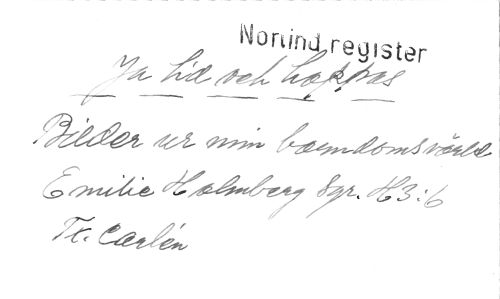 Norlind, register
Ja tid och hoppas
Bilder ur min barndomsvärld
Emilie Holmberg Sgr. H3:6
Tr. Carlén